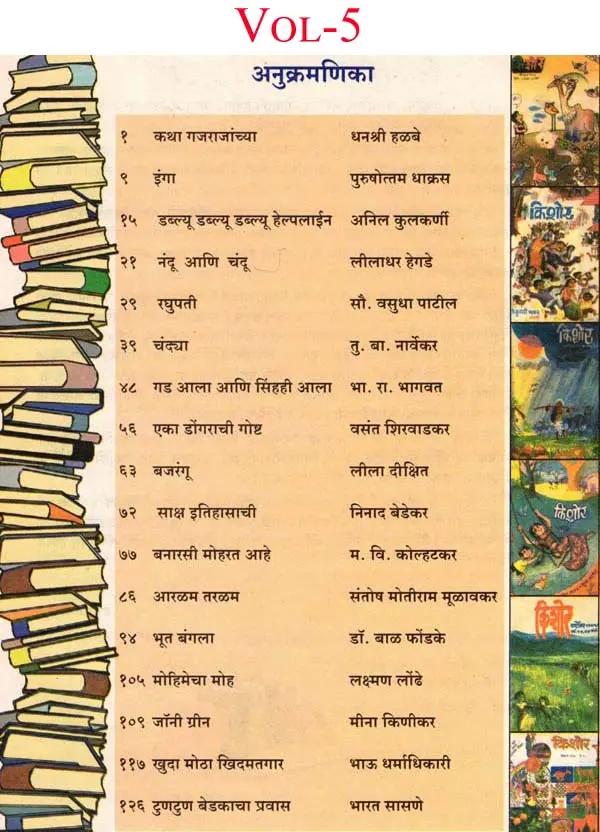 VOL-5
अनुक्रमणिका
१ कथा गजराजांच्या धनश्री हळबे
९ इंगा पुरुषोत्तम धाक्रस
१५ डब्ल्यू डब्ल्यू डब्ल्यू हेल्पलाईन अनिल कुलकर्णी
२१ नंदू आणि चंदू लीलाधर हेगडे
२९ रघुपती सौ. वसुधा पाटील
३९ चंद्या तु. बा. नार्वेकर
४८ गड आला आणि सिंहही आला भा. रा. भागवत
५६ एका डोंगराची गोष्ट वसंत शिरवाडकर
६३ बजरंगू लीला दीक्षित
७२ साक्ष इतिहासाची निनाद बेडेकर
७७ बनारसी मोहरत आहे म. वि. कोल्हटकर
८६ आरळम तरळम संतोष मोतीराम मूळावकर
९४ भूत बंगला डॉ. बाळ फोंडके
१०५ मोहिमेचा मोह लक्ष्मण लोंढे
१०९ जॉनी ग्रीन मीना किणीकर
११७ खुदा मोठा खिदमतगार भाऊ धर्माधिकारी
१२६ टुणटुण बेडकाचा प्रवास भारत सासणे
किशोर
किशोर
किशोर
किशोर
किशोर
किशोर